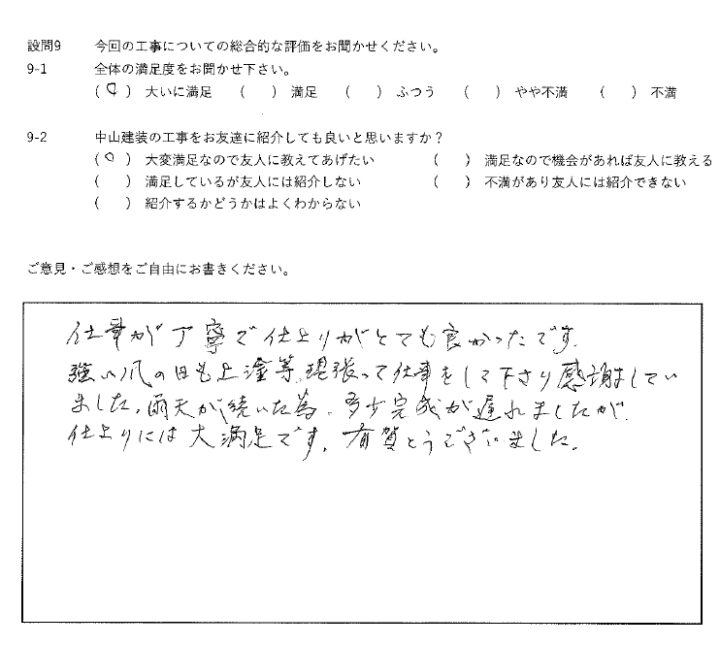 設問9 今回の工事についての総合的な評価をお聞かせください。
9-1 全体の満足度をお聞かせ下さい。
(○) 大いに満足 ( ) 満足 ( ) ふつう ( ) やや不満 ( ) 不満
9-2 中山建装の工事をお友達に紹介しても良いと思いますか？
(○) 大変満足なので友人に教えてあげたい ( ) 満足なので機会があれば友人に教える
( ) 満足しているが友人には紹介しない ( ) 不満があり友人には紹介できない
( ) 紹介するかどうかはよくわからない
ご意見・ご感想をご自由にお書きください。
仕事が丁寧で仕上りがとても良かったです。
強い風の日も上塗等、頑張って仕事をして下さり感謝してい
ました。雨天が続いた為、多少完成が遅れましたが、
仕上りには大満足です。有賀とうございました。